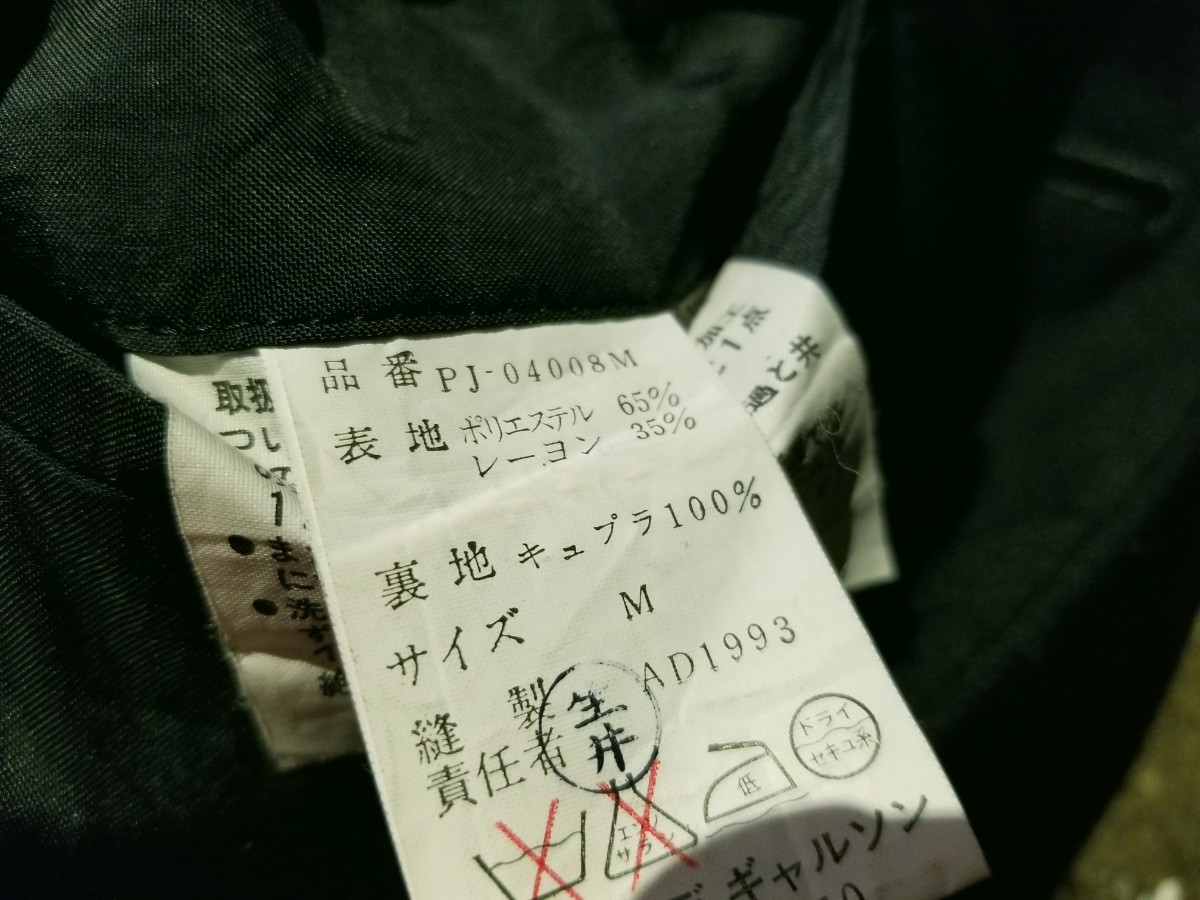 品番 PJ-04008M
表地 ポリエステル 65%
レーヨン 35%
裏地 キュプラ100%
サイズ M
AD1993
縫製
責任者
生井
エンソ
サラシ
低
ドライ
セキユ系
デギャルソン
取扱
つい
1
● ま
に
● 洗
すす
加工
1点
と共
過